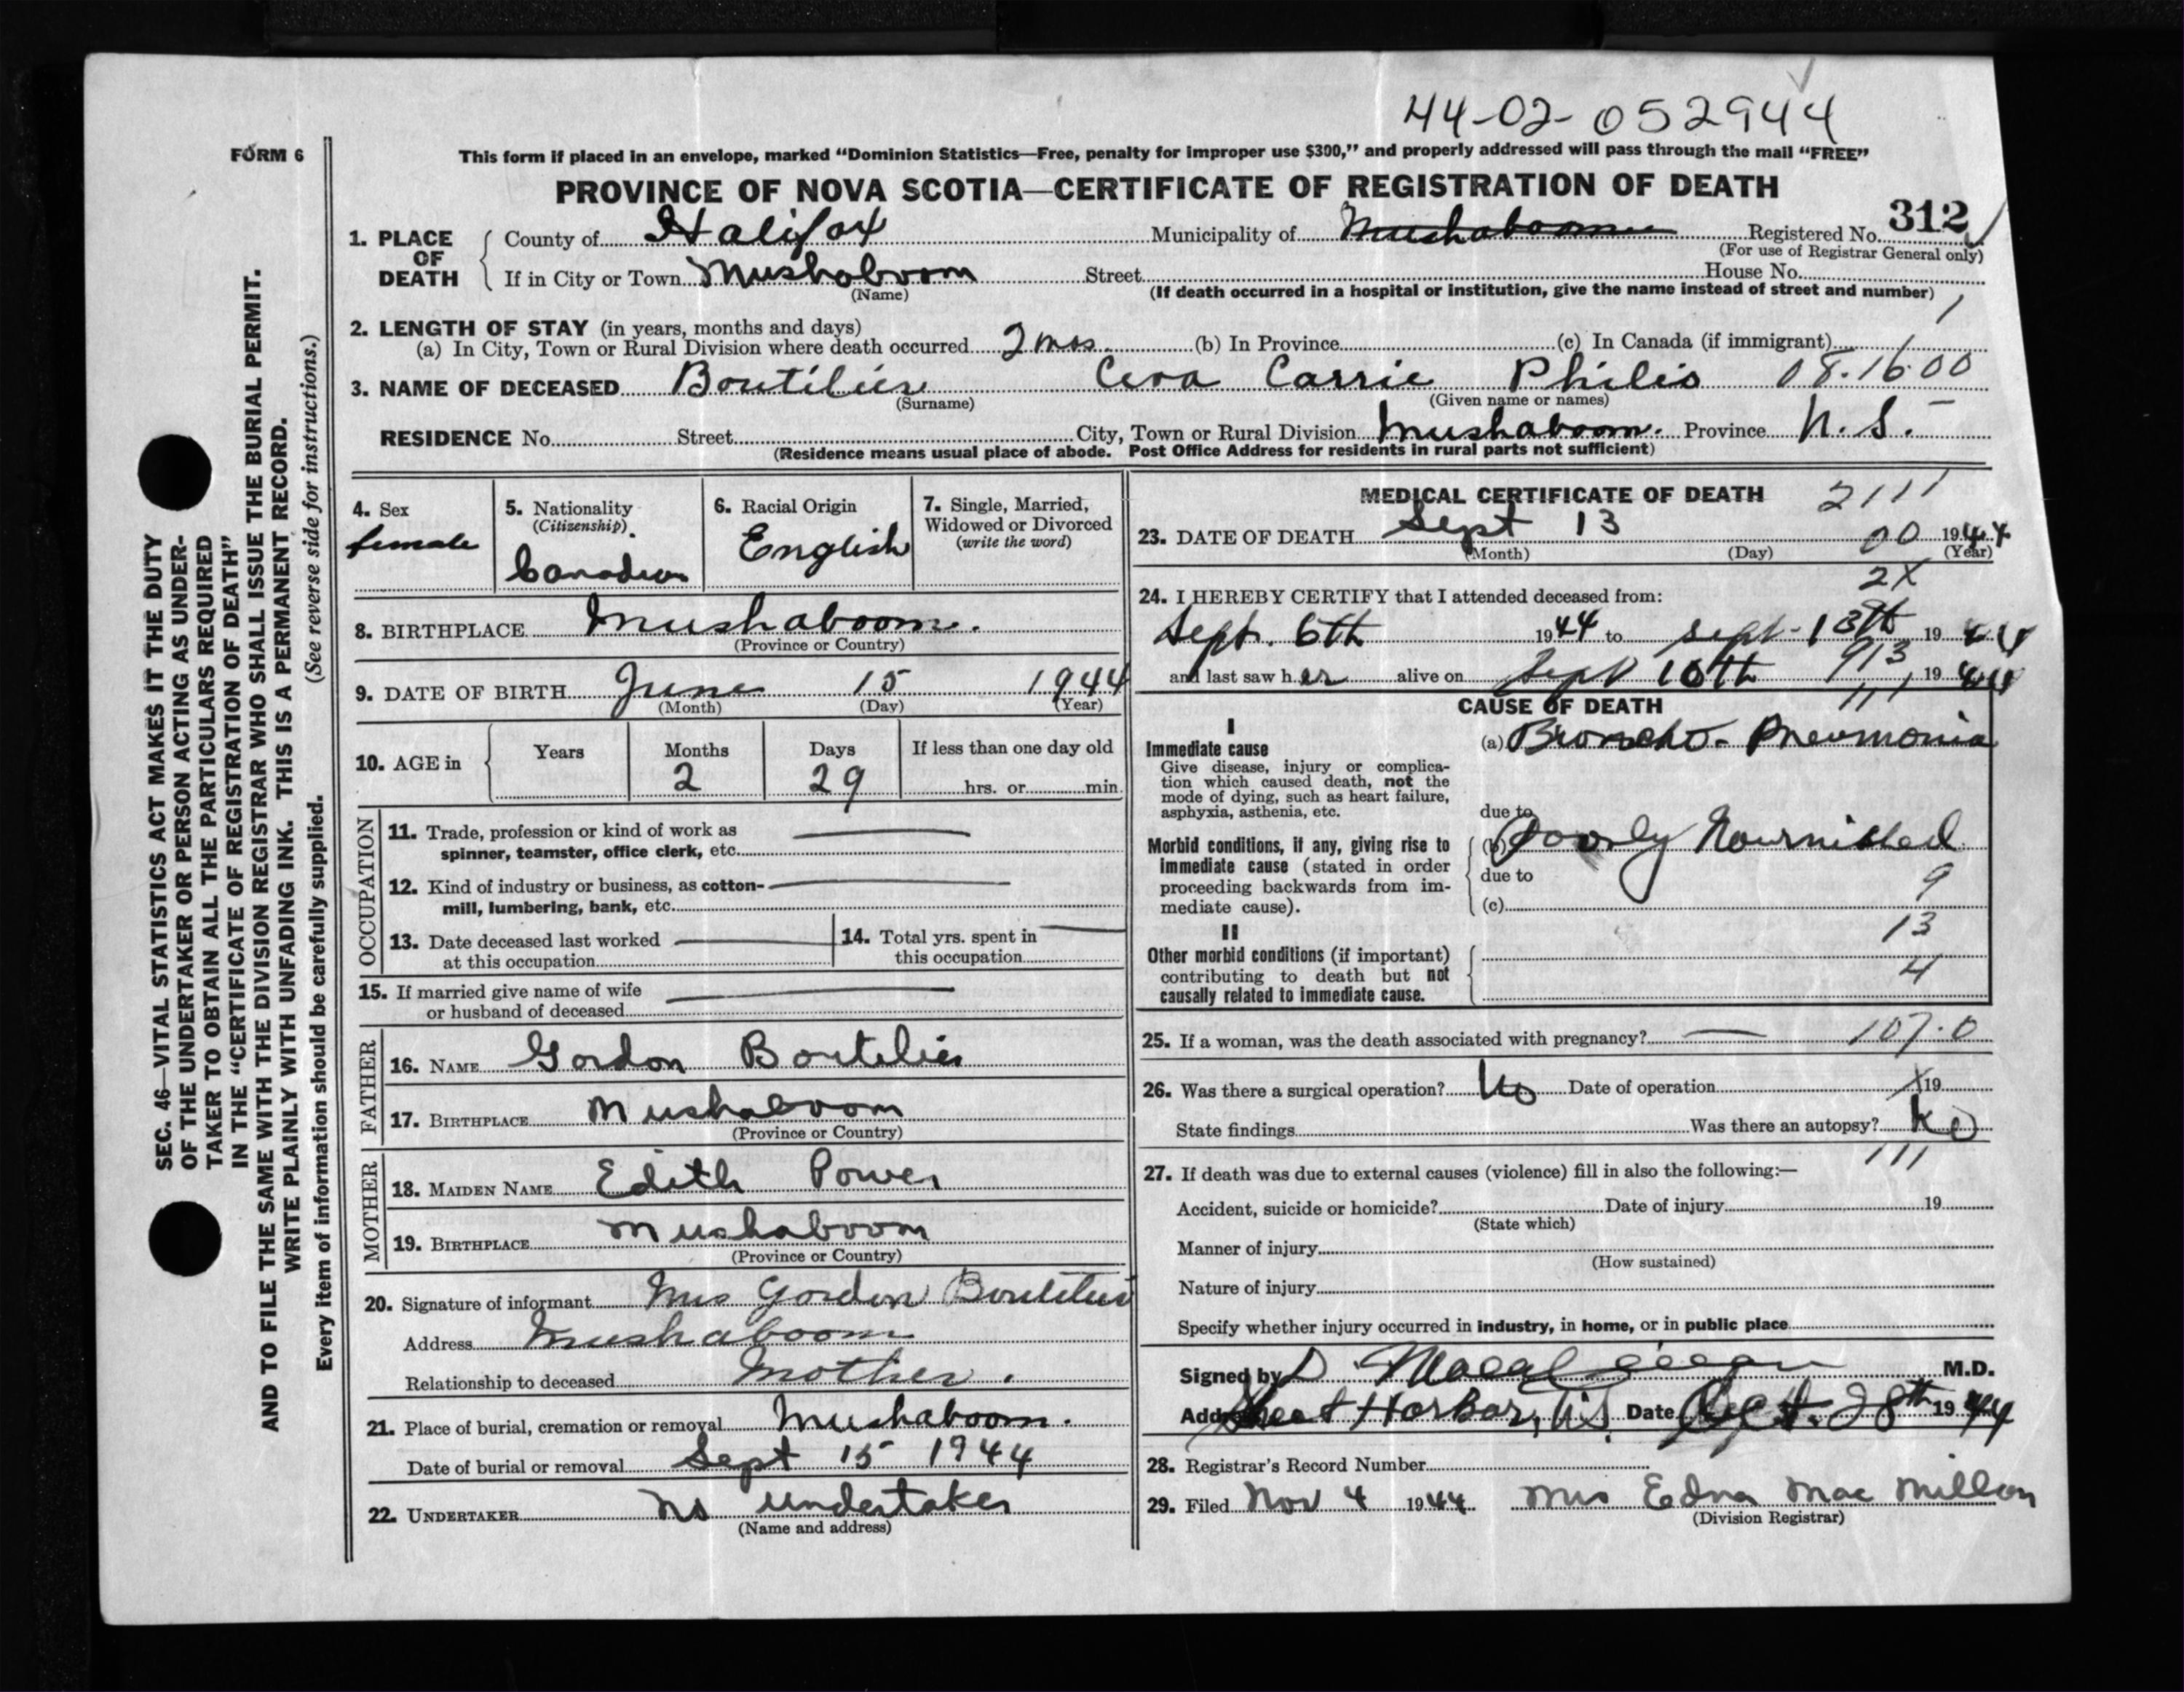 44-02-052944
FORM 6
This form if placed in an envelope, marked “Dominion Statistics—Free, penalty for improper use $300,” and properly addressed will pass through the mail “FREE”
PROVINCE OF NOVA SCOTIA—CERTIFICATE OF REGISTRATION OF DEATH
1. PLACE OF DEATH
County of Halifax Municipality of Mushaboom Registered No. 312
(For use of Registrar General only)
If in City or Town Mushaboom Street House No.
(Name) (If death occurred in a hospital or institution, give the name instead of street and number)
2. LENGTH OF STAY (in years, months and days)
(a) In City, Town or Rural Division where death occurred 2 mos (b) In Province (c) In Canada (if immigrant)
3. NAME OF DECEASED Boutilier Carrie Philis 08.16.00
(Surname) (Given name or names)
RESIDENCE No. Street City, Town or Rural Division Mushaboom. Province N.S.
(Residence means usual place of abode. Post Office Address for residents in rural parts not sufficient)
4. Sex
female
5. Nationality
(Citizenship)
Canadian
6. Racial Origin
English
7. Single, Married,
Widowed or Divorced
(write the word)
8. BIRTHPLACE Mushaboom.
(Province or Country)
9. DATE OF BIRTH June 15 1944
(Month) (Day) (Year)
10. AGE in Years Months Days If less than one day old
2 29 hrs. or min.
OCCUPATION
11. Trade, profession or kind of work as
spinner, teamster, office clerk, etc.
12. Kind of industry or business, as cotton-
mill, lumbering, bank, etc.
13. Date deceased last worked
at this occupation
14. Total yrs. spent in
this occupation
15. If married give name of wife
or husband of deceased
FATHER
16. NAME Gordon Boutilier
17. BIRTHPLACE Mushaboom
(Province or Country)
MOTHER
18. MAIDEN NAME Edith Power
19. BIRTHPLACE Mushaboom
(Province or Country)
20. Signature of informant Mrs Gordon Boutilier
Address Mushaboom
Relationship to deceased Mother.
21. Place of burial, cremation or removal Mushaboom.
Date of burial or removal Sept 15 1944
22. UNDERTAKER no undertaker
(Name and address)
MEDICAL CERTIFICATE OF DEATH 2111
23. DATE OF DEATH Sept 13 00 1944
(Month) (Day) (Year)
2X
24. I HEREBY CERTIFY that I attended deceased from:
Sept. 6th 1944 to Sept. 13th 1944
and last saw her alive on Sept 10th 913 1944
CAUSE OF DEATH 111
I
Immediate cause
Give disease, injury or complica-
tion which caused death, not the
mode of dying, such as heart failure,
asphyxia, asthenia, etc.
(a) Broncho-Pneumonia
due to
Morbid conditions, if any, giving rise to
immediate cause (stated in order
proceeding backwards from im-
mediate cause).
(b) Poorly Nournished
due to 9
(c)
13
II
Other morbid conditions (if important)
contributing to death but not
causally related to immediate cause.
4
25. If a woman, was the death associated with pregnancy? 107.0
26. Was there a surgical operation? No Date of operation X 19
State findings Was there an autopsy? No
111
27. If death was due to external causes (violence) fill in also the following:—
Accident, suicide or homicide? Date of injury 19
(State which)
Manner of injury
(How sustained)
Nature of injury
Specify whether injury occurred in industry, in home, or in public place
Signed by D. M.D.
Address Sheet Harbor, N.S. Date Oct. 28th 1944
28. Registrar's Record Number
29. Filed Nov 4 1944 Mrs Edna Mac Millan
(Division Registrar)
SEC. 46—VITAL STATISTICS ACT MAKES IT THE DUTY
OF THE UNDERTAKER OR PERSON ACTING AS UNDER-
TAKER TO OBTAIN ALL THE PARTICULARS REQUIRED
IN THE “CERTIFICATE OF REGISTRATION OF DEATH”
AND TO FILE THE SAME WITH THE DIVISION REGISTRAR WHO SHALL ISSUE THE BURIAL PERMIT.
WRITE PLAINLY WITH UNFADING INK. THIS IS A PERMANENT RECORD.
Every item of information should be carefully supplied. (See reverse side for instructions.)